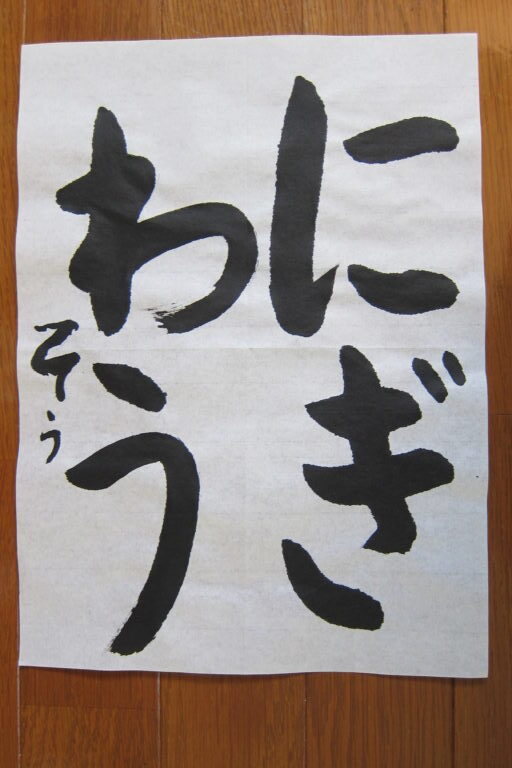 にぎ
わう
そう